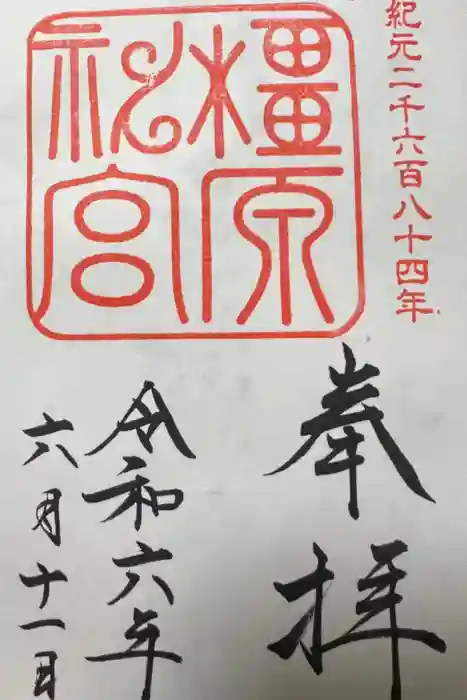 紀元二千六百八十四年
橿原
神宮
奉拝
令和六年
六月十一日